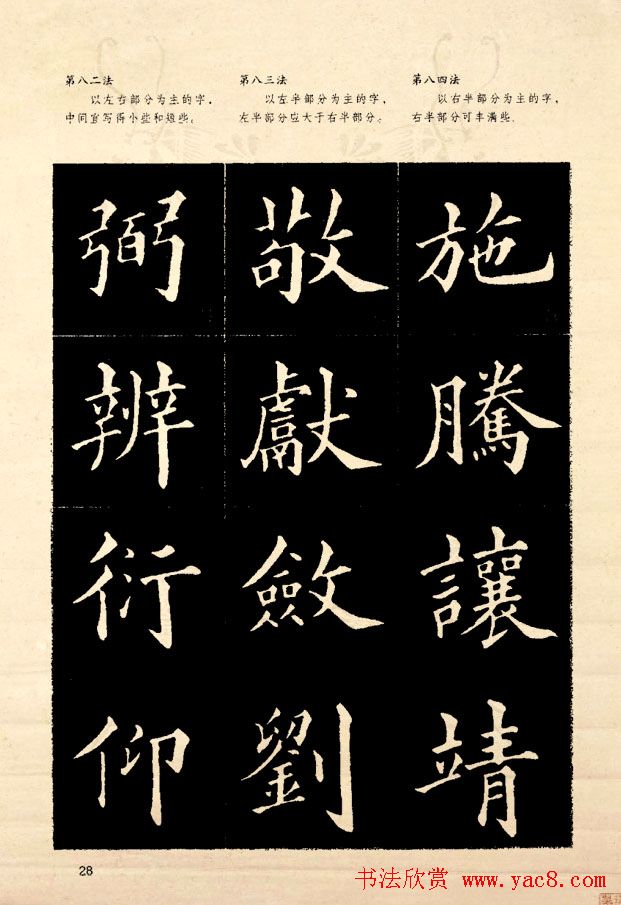 第八二法
以左右部分为主的字，
中间宜写得小些和短些。
第八三法
以左半部分为主的字，
左半部分应大于右半部分。
第八四法
以右半部分为主的字，
右半部分可丰满些。
弼 敬 施
辨 獻 騰
衍 斂 讓
仰 劉 靖
28
书法欣赏 www.yac8.com